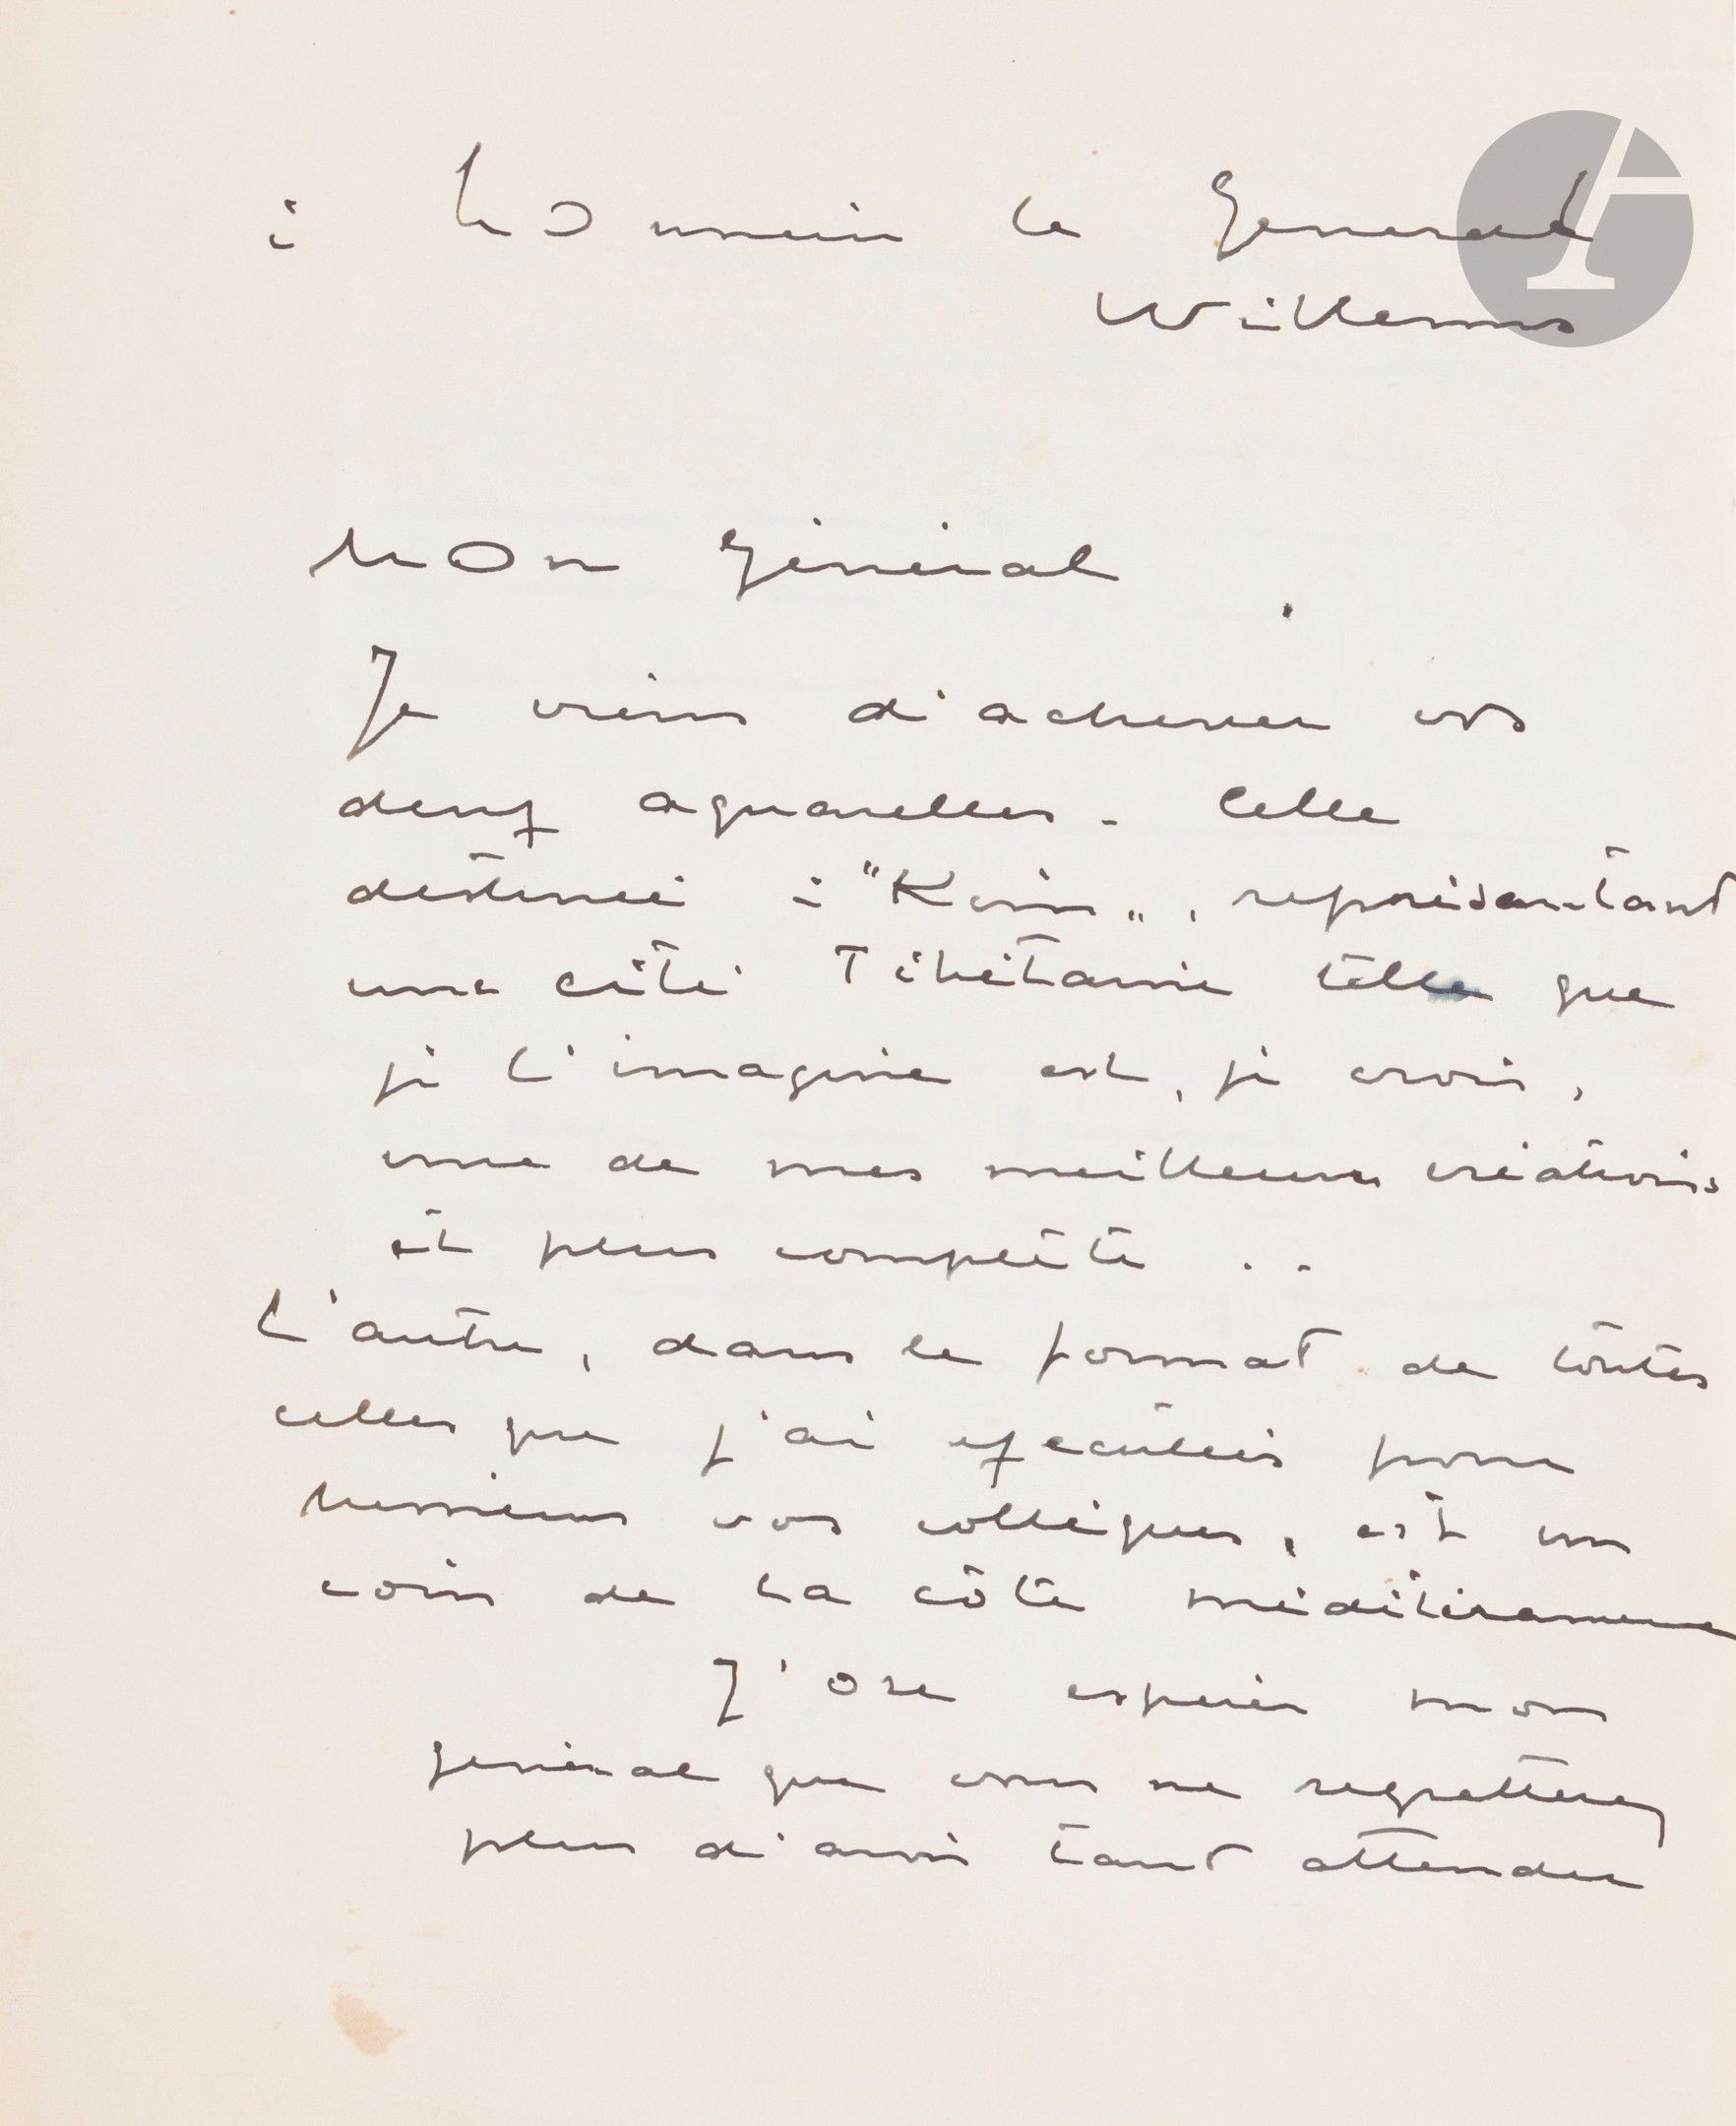 à Monsieur le Général
Willems
Mon Général
Je viens d'achever vos
deux aquarelles. Celle
destinée à "Kim", représentant
une cité Tibétaine telle que
je l'imagine est, je crois,
une de mes meilleures créations
et plus complète ..
L'autre, dans le format de toutes
celles que j'ai exécutées pour
Messieurs vos collègues, est un
coin de la côte méditéranenne
J'ose espérer mon
général que vous ne regretterez
plus d'avoir tant attendu